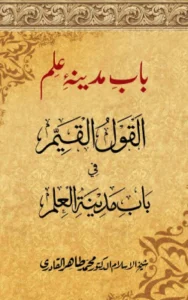 باب مدینۂ علم
القَولُ القَيِّم
في
بابِ مَدِينَةِ العِلم
شیخ الاسلام الدکتور محمد طاہر القادری